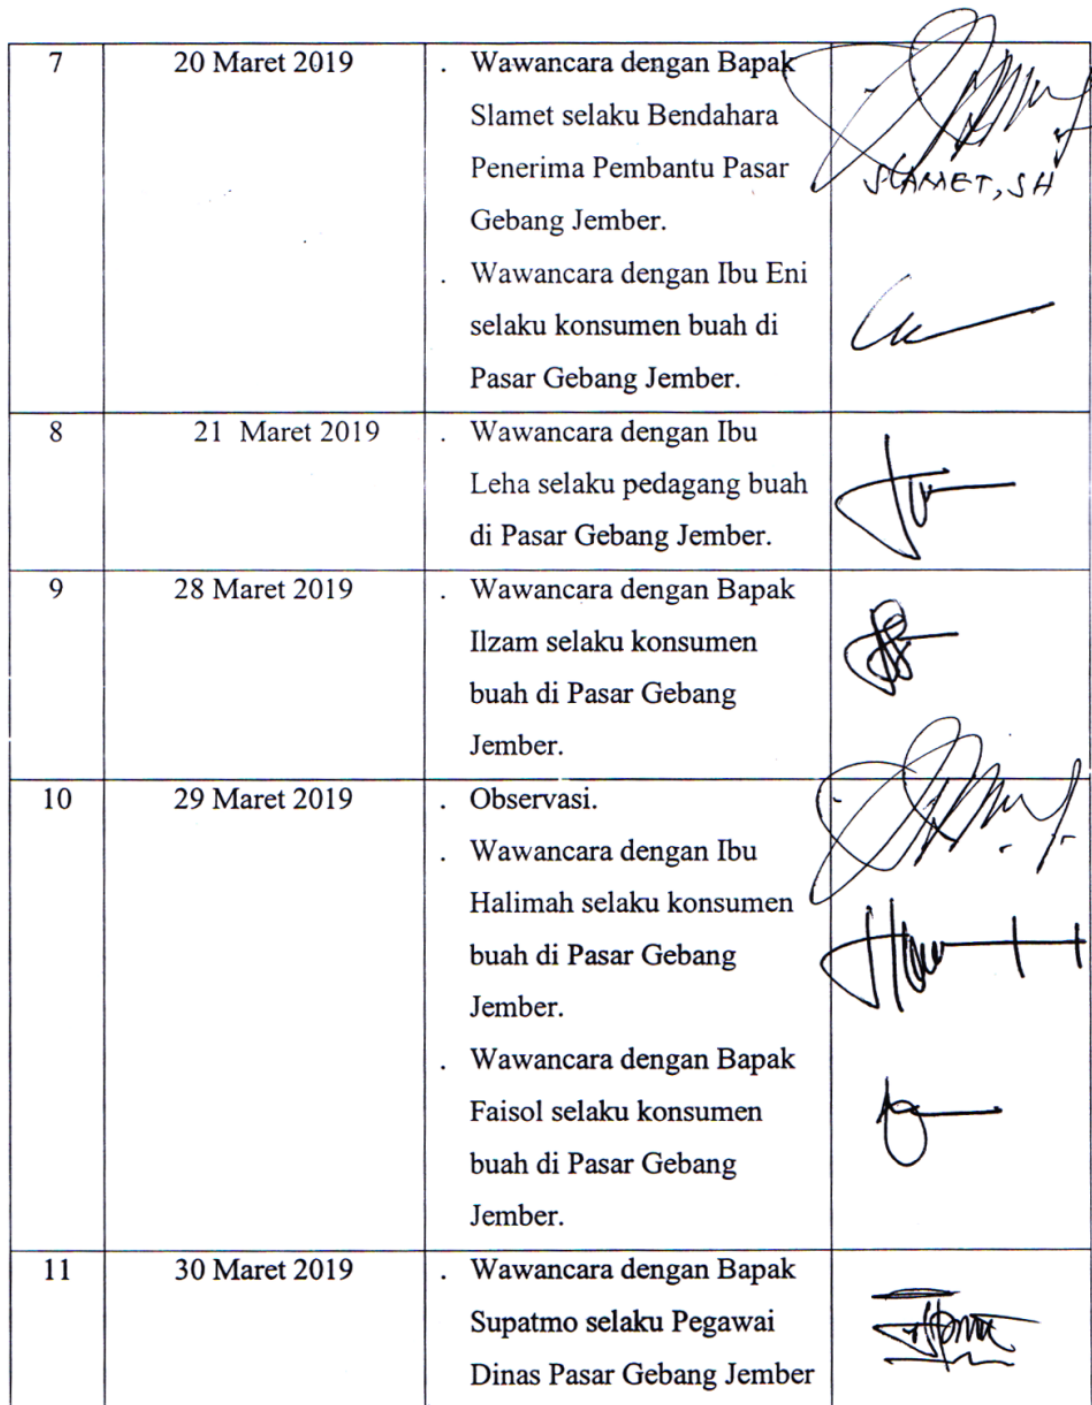 7 20 Maret 2019 . Wawancara dengan Bapak
Slamet selaku Bendahara
Penerima Pembantu Pasar
SLAMET, SH
Gebang Jember.
. Wawancara dengan Ibu Eni
selaku konsumen buah di
Pasar Gebang Jember.
8 21 Maret 2019 . Wawancara dengan Ibu
Leha selaku pedagang buah
di Pasar Gebang Jember.
9 28 Maret 2019 . Wawancara dengan Bapak
Ilzam selaku konsumen
buah di Pasar Gebang
Jember.
10 29 Maret 2019 . Observasi.
. Wawancara dengan Ibu
Halimah selaku konsumen
buah di Pasar Gebang
Jember.
. Wawancara dengan Bapak
Faisol selaku konsumen
buah di Pasar Gebang
Jember.
11 30 Maret 2019 . Wawancara dengan Bapak
Supatmo selaku Pegawai
Dinas Pasar Gebang Jember